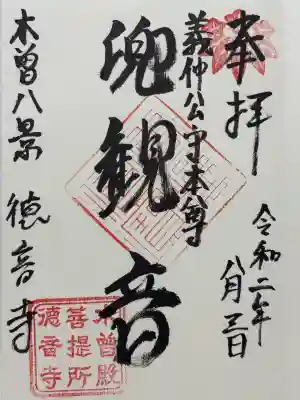 奉拝
令和二年
八月三日
義仲公守本尊
兜観音
木曽八景 徳音寺
木曽殿
菩提所
德音寺